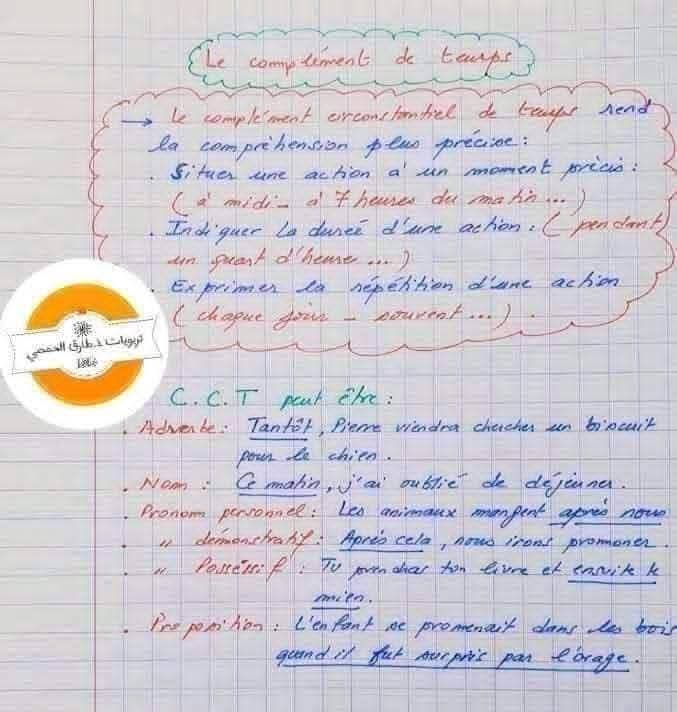 Le complément de temps
→ Le complément circonstantiel de temps rend
la compréhension plus précise :
. Situer une action à un moment précis :
( à midi - à 7 heures du matin ... )
. Indiquer la dureé d'une action : ( pendant
un quart d'heure ... )
. Exprimer la répétition d'une action
( chaque jour - souvent ... ) .
تربويات ذ.طارق الحمضي
C.C.T peut être :
. Adverbe : Tantôt, Pierre viendra chercher un biscuit
pour le chien .
. Nom : Ce matin, j'ai oublié de déjeuner.
. Pronom personnel : Les animaux mangent après nous
. " démonstratif : Après cela, nous irons promener.
. " Possessif : Tu prendras ton livre et ensuite le
mien.
. Proposition : L'enfant se promenait dans les bois
quand il fut surpris par l'orage.